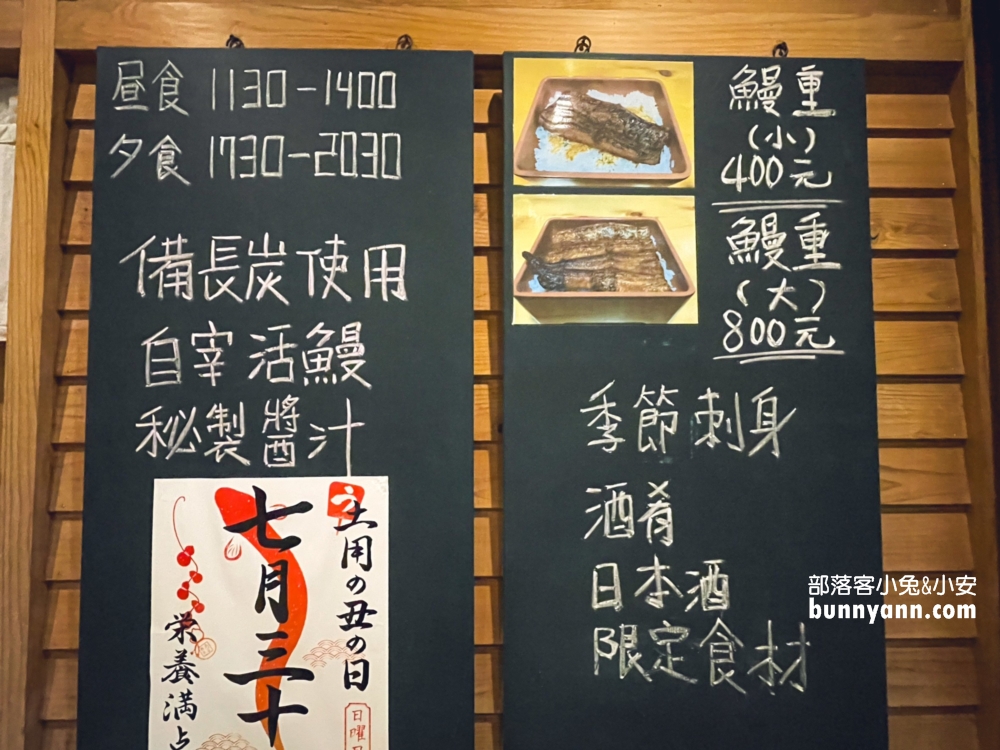 昼食 1130-1400
夕食 1730-2030
備長炭使用
自宰活鰻
秘製醬汁
土用の丑の日
七月三十
栄養満点
日曜日
鰻重
(小)
400元
鰻重
(大)
800元
季節刺身
酒肴
日本酒
限定食材
部落客小兔&小安
bunnyann.com